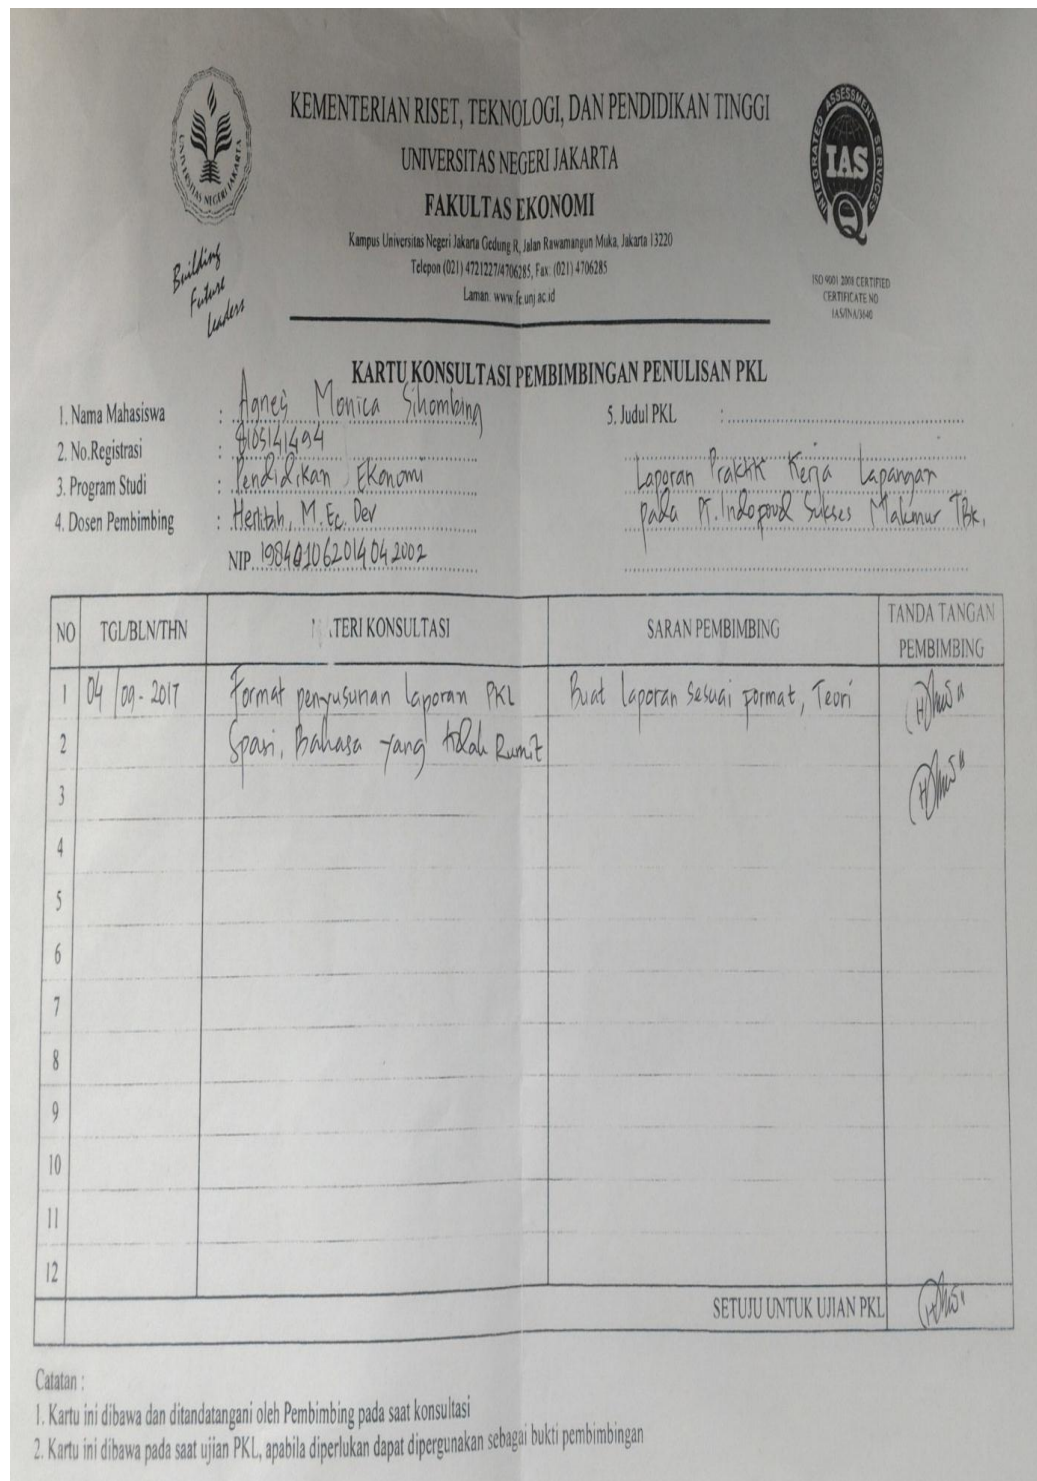 KEMENTERIAN RISET, TEKNOLOGI, DAN PENDIDIKAN TINGGI
UNIVERSITAS NEGERI JAKARTA
FAKULTAS EKONOMI
Kampus Universitas Negeri Jakarta Gedung R, Jalan Rawamangun Muka, Jakarta 13220
Telepon (021) 4721227/4706285, Fax: (021) 4706285
Laman: www.fe.unj.ac.id
UNIVERSITAS NEGERI JAKARTA
Building
Future
Leaders
INTEGRATED ASSESSMENT SERVICES
IAS
Q
ISO 9001 2008 CERTIFIED
CERTIFICATE NO
IAS/INA/3640
KARTU KONSULTASI PEMBIMBINGAN PENULISAN PKL
1. Nama Mahasiswa : Agnes Monica Sihombing
2. No.Registrasi : 8105141494
3. Program Studi : Pendidikan Ekonomi
4. Dosen Pembimbing : Herlitah, M.Ec.Dev
NIP. 198401062014042002
5. Judul PKL :
Laporan Praktik Kerja Lapangan
pada PT. Indofood Sukses Makmur Tbk.
NO TGL/BLN/THN MATERI KONSULTASI SARAN PEMBIMBING TANDA TANGAN PEMBIMBING
1 04/09-2017 Format penyusunan laporan PKL Buat laporan sesuai format, Teori
2 Spasi, Bahasa yang tidak Rumit
3
4
5
6
7
8
9
10
11
12
SETUJU UNTUK UJIAN PKL
Catatan :
1. Kartu ini dibawa dan ditandatangani oleh Pembimbing pada saat konsultasi
2. Kartu ini dibawa pada saat ujian PKL, apabila diperlukan dapat dipergunakan sebagai bukti pembimbingan